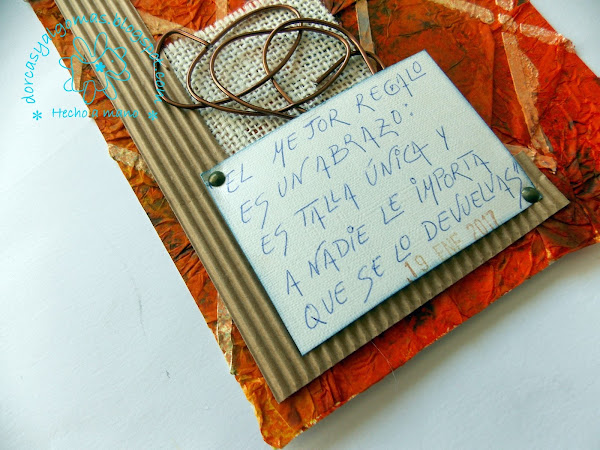 dorcasyalgomas.blogspot.com
* Hecho a mano *
EL MEJOR REGALO
ES UN ABRAZO:
ES TALLA ÚNICA Y
A NADIE LE IMPORTA
QUE SE LO DEVUELVAS
19 ENE 2017